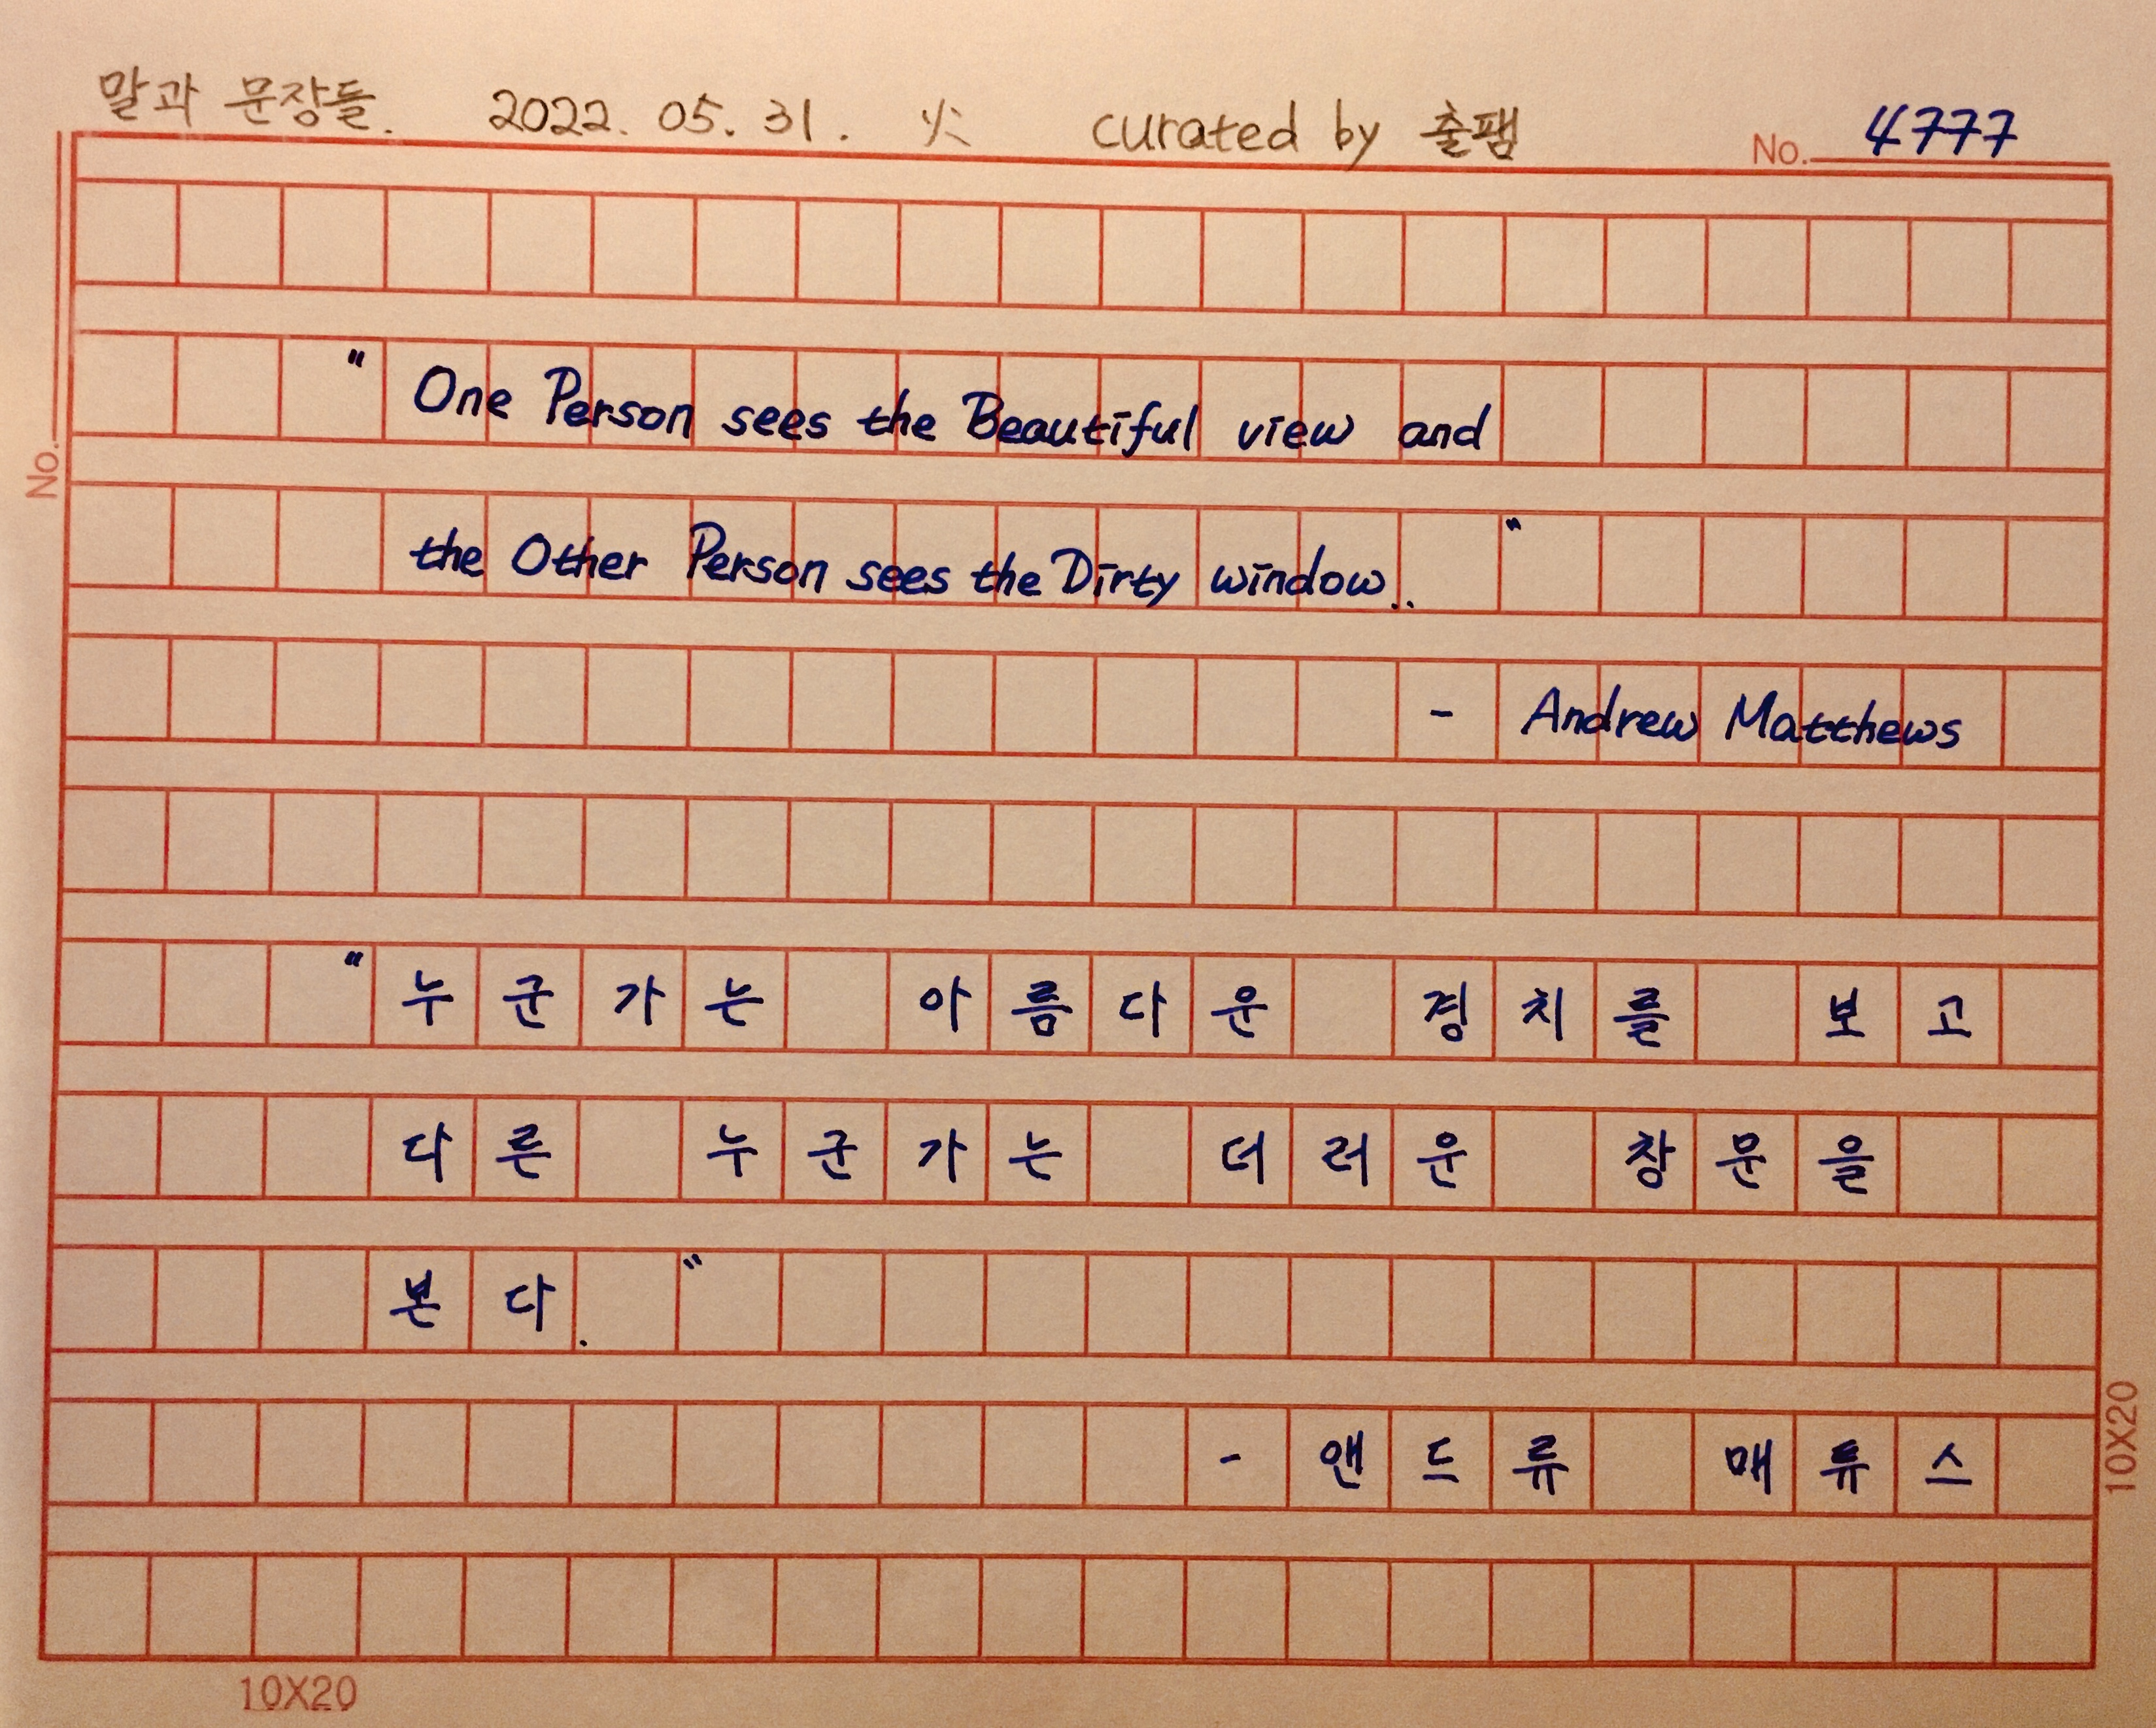 말과 문장들. 2022. 05. 31. 火 curated by 출팸 No. 4777
No.
" One Person sees the Beautiful view and
the Other Person sees the Dirty window.. "
- Andrew Matthews
" 누군가는 아름다운 경치를 보고
다른 누군가는 더러운 창문을
본다. "
- 앤드류 매튜스
10X20
10X20